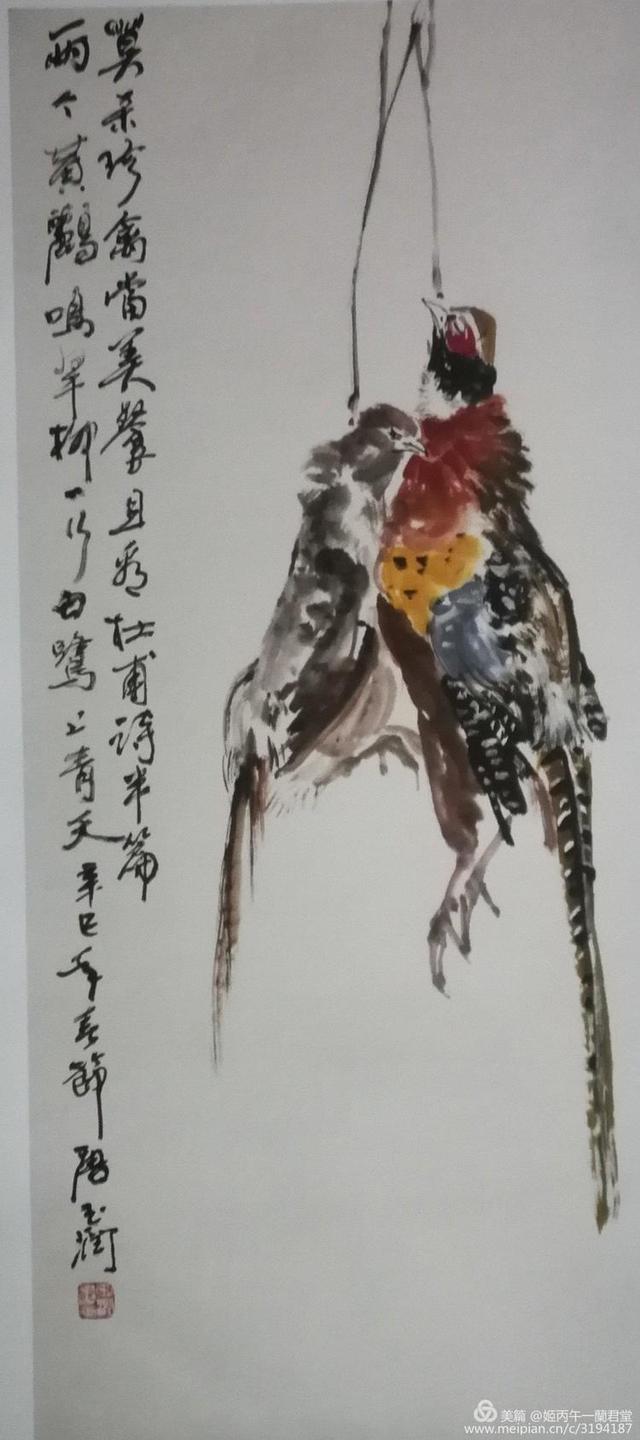 莫采珍禽當美馨且看杜甫詩半篇
兩个黄鸝鳴翠柳一行白鷺上青天辛巳年春節
美篇 @姬丙午一蘭君堂
www.meipian.cn/c/3194187